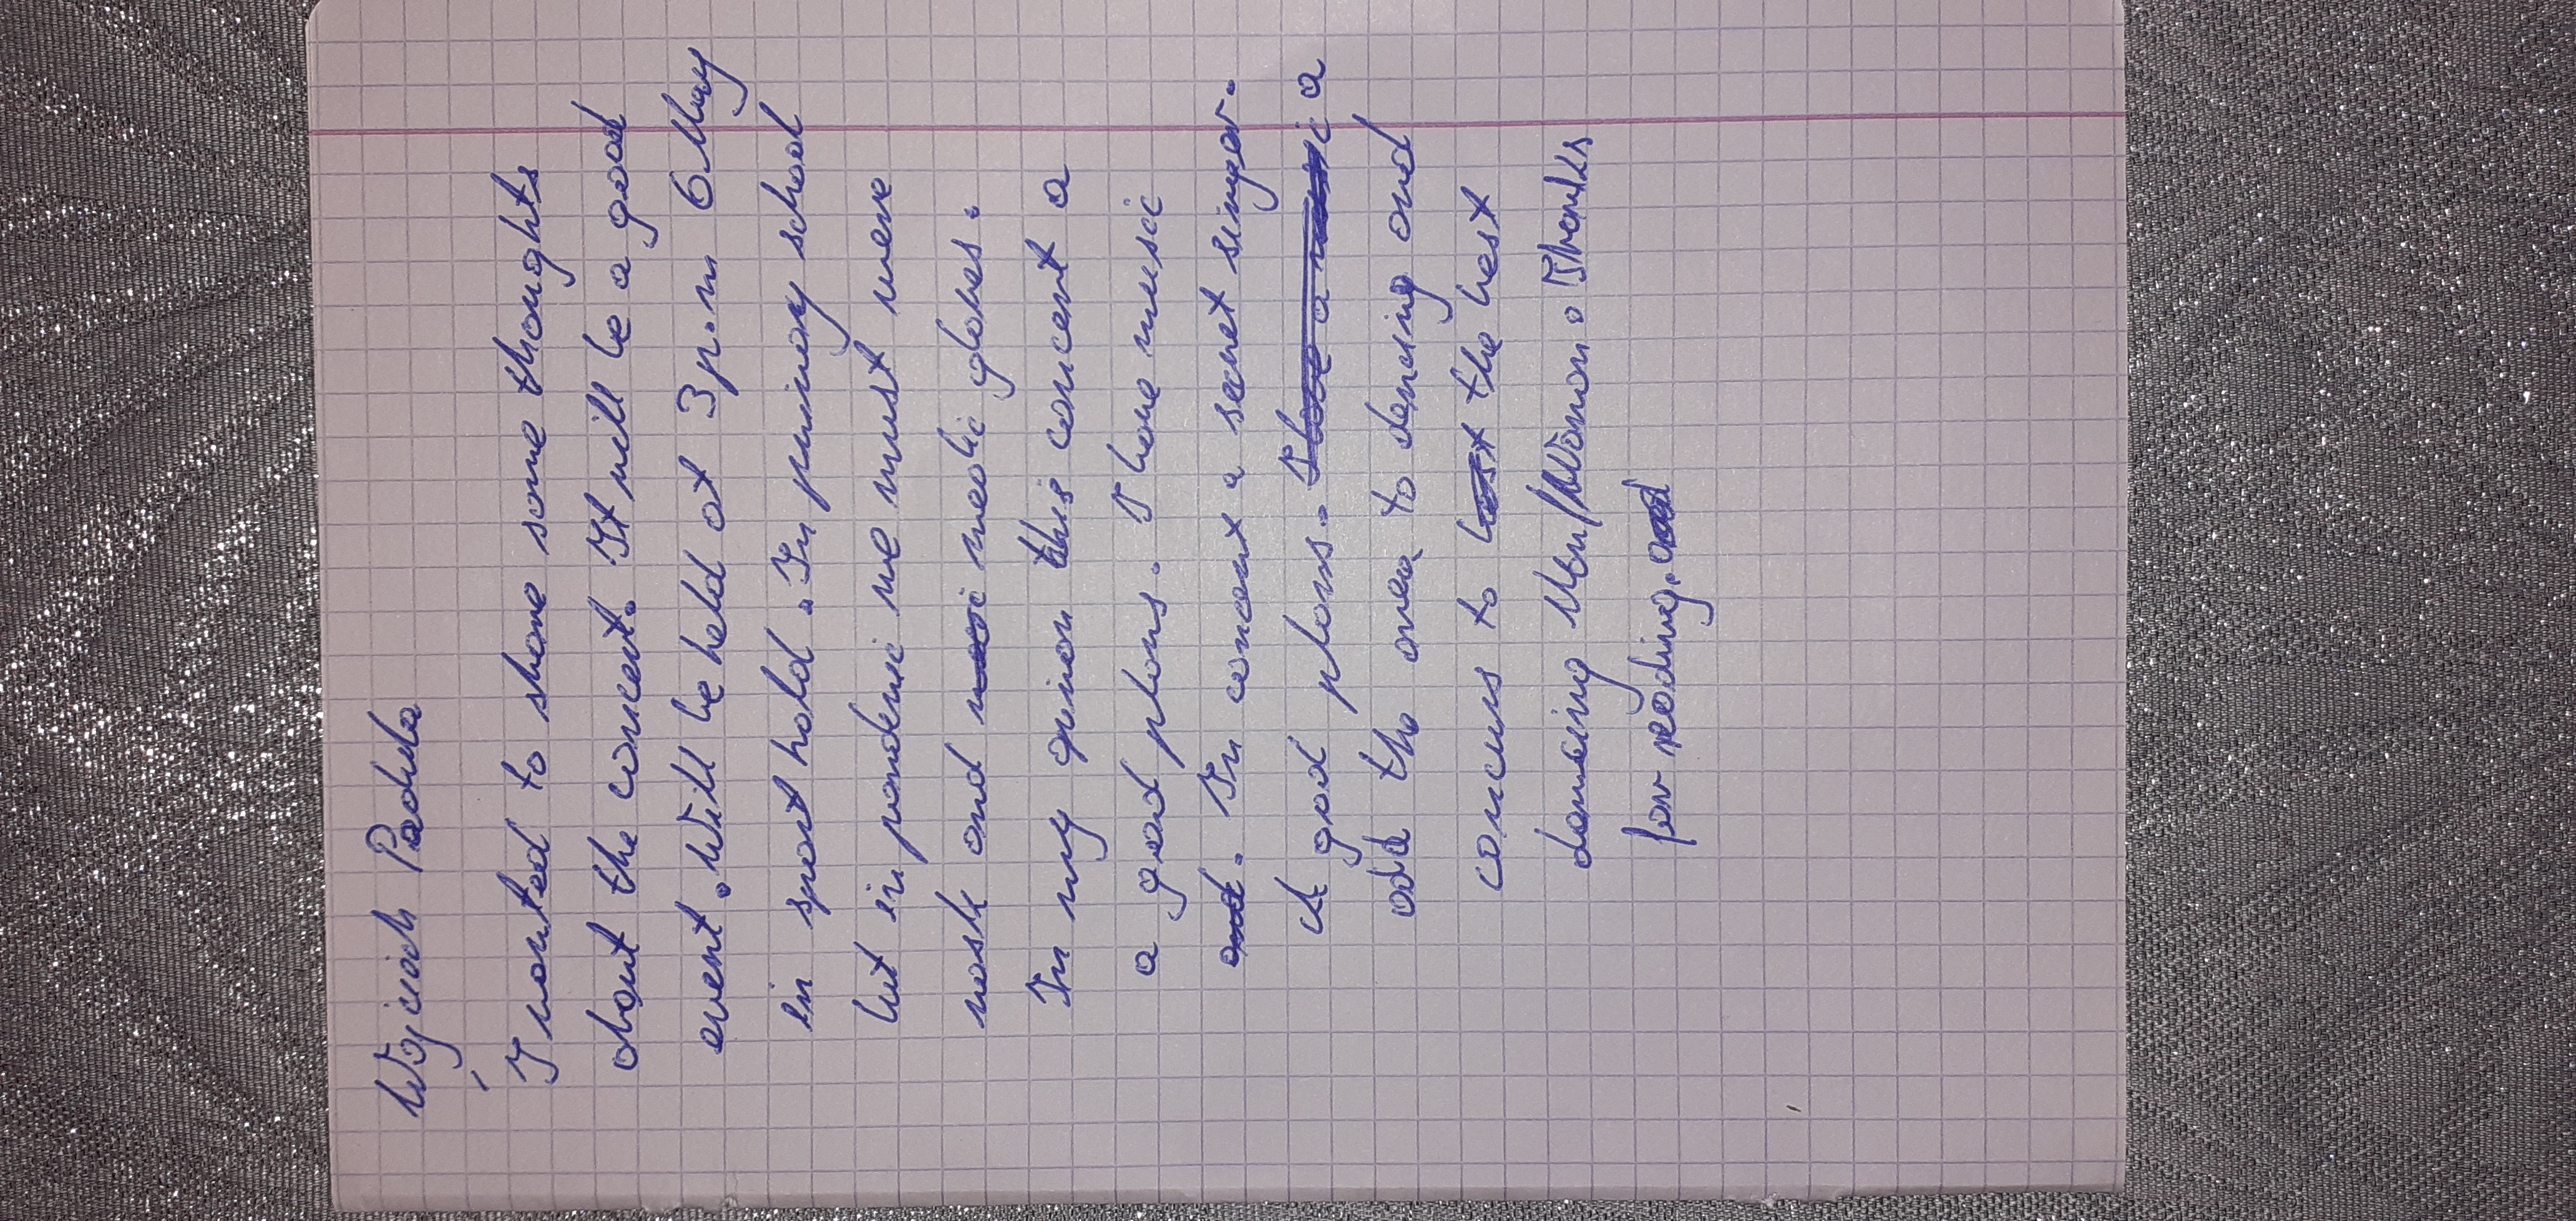 Wojciech Padula
I wanted to share some thoughts
about the concert. It will be a good
event. Will be held at 3 p.m 6 May
in sport hold. In primary school
but in pandemic we must were
mask and medic globes.
In my opinion this concert a
a great plans. I love music
In concert a secret singer.
good plans. a
add the area to dancing and
concurs to the best
dancing Men/Woman. Thanks
for reading.